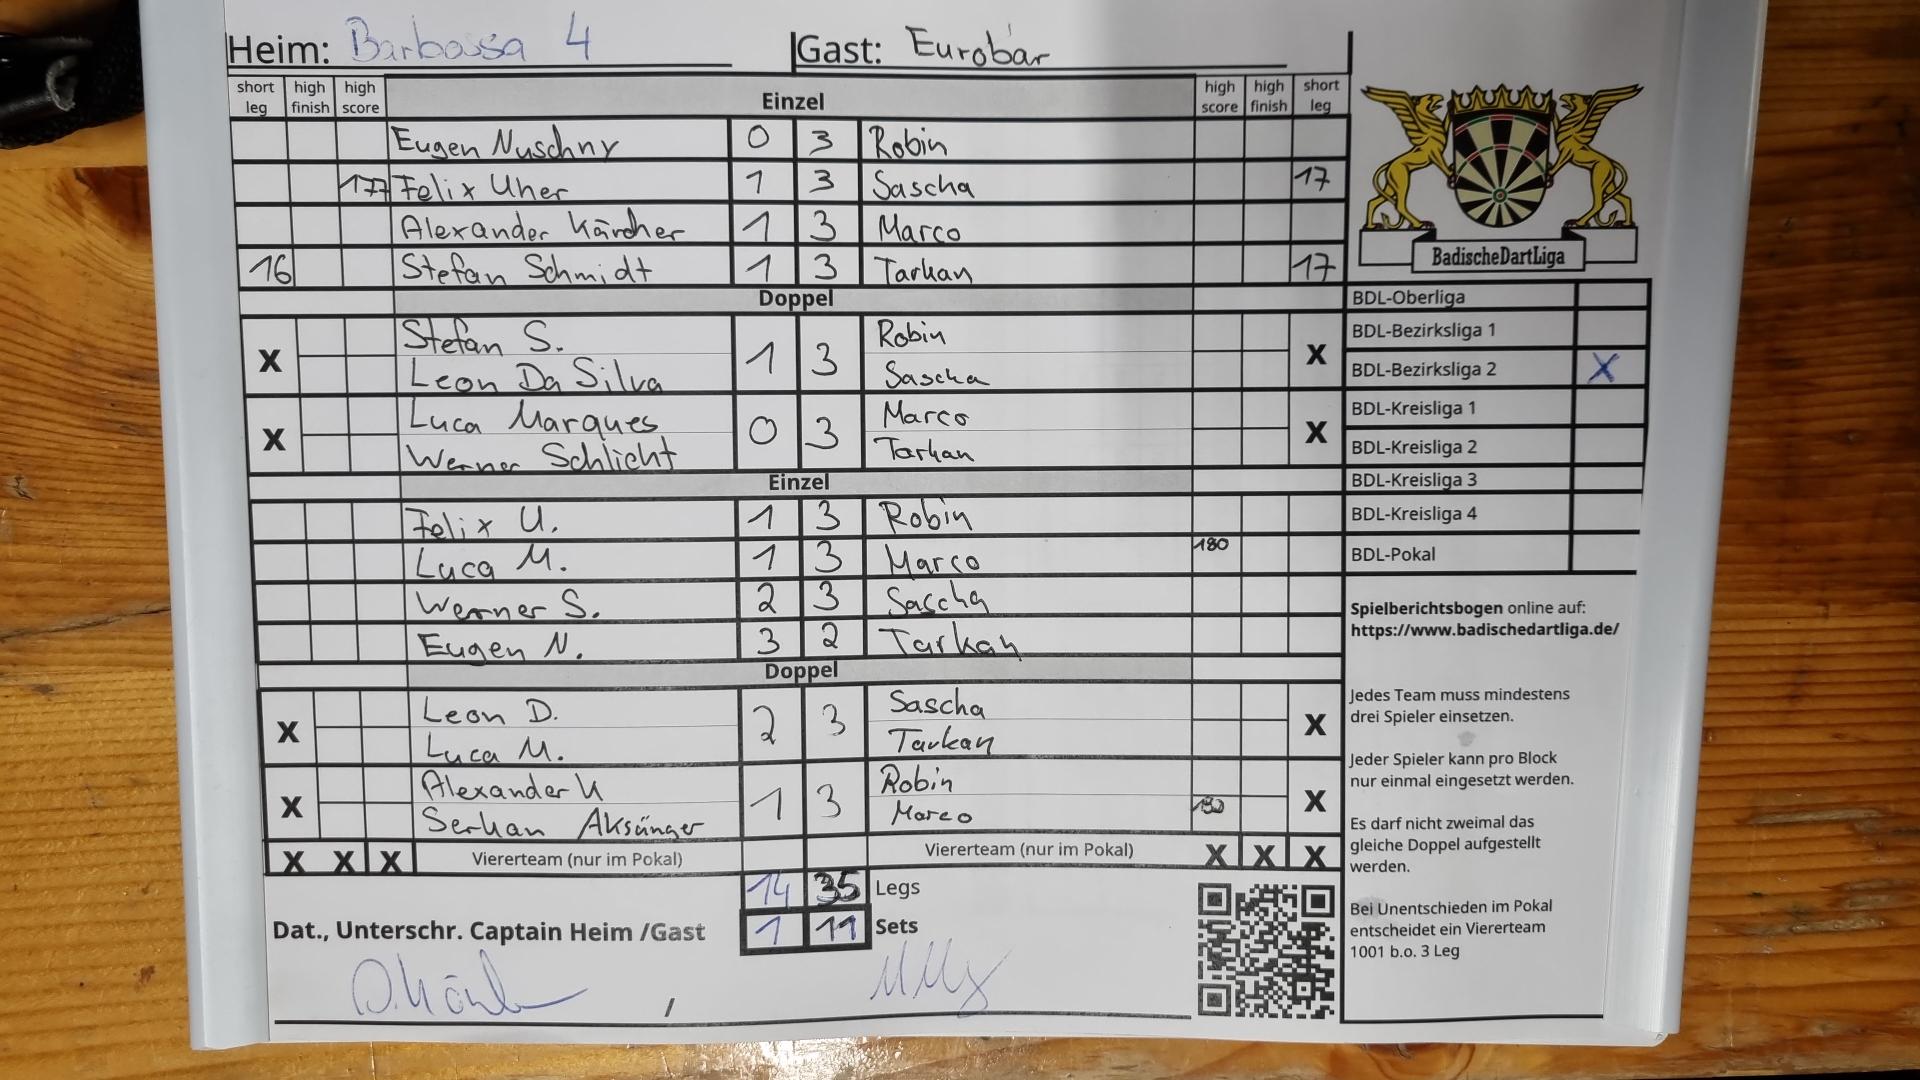 Heim: Barbossa 4 Gast: Eurobar
short leg high finish high score Einzel high score high finish short leg
Eugen Nuschny 0 3 Robin
177 Felix Uher 1 3 Sascha 17
Alexander Kärcher 1 3 Marco
16 Stefan Schmidt 1 3 Tarkan 17
Doppel
Stefan S. Robin
X 1 3 X
Leon Da Silva Sascha
Luca Marques Marco
X 0 3 X
Werner Schlicht Tarkan
Einzel
Felix U. 1 3 Robin
Luca M. 1 3 Marco 180
Werner S. 2 3 Sascha
Eugen N. 3 2 Tarkan
Doppel
Leon D. Sascha
X 2 3 X
Luca M. Tarkan
Alexander K Robin
X 1 3 X
Serkan Aksünger Marco
X X X Viererteam (nur im Pokal) Viererteam (nur im Pokal) X X X
14 35 Legs
Dat., Unterschr. Captain Heim /Gast 1 11 Sets
/
BadischeDartLiga
BDL-Oberliga
BDL-Bezirksliga 1
BDL-Bezirksliga 2 X
BDL-Kreisliga 1
BDL-Kreisliga 2
BDL-Kreisliga 3
BDL-Kreisliga 4
BDL-Pokal
Spielberichtsbogen online auf:
https://www.badischedartliga.de/
Jedes Team muss mindestens
drei Spieler einsetzen.
Jeder Spieler kann pro Block
nur einmal eingesetzt werden.
Es darf nicht zweimal das
gleiche Doppel aufgestellt
werden.
Bei Unentschieden im Pokal
entscheidet ein Viererteam
1001 b.o. 3 Leg